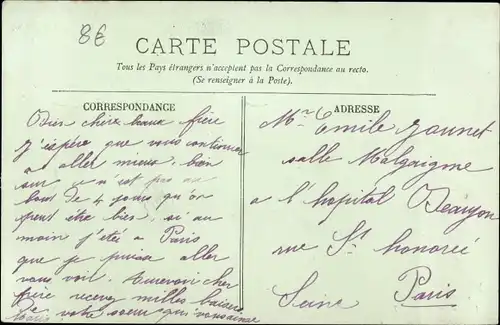 8€
CARTE POSTALE
Tous les Pays étrangers n'acceptent pas la Correspondance au recto.
(Se renseigner à la Poste).
CORRESPONDANCE
Bien chère beaux frère
J'espère que vous continuer
a aller mieux, bien
sur ce n'est pas au
bout de 4 jours qu'on
peut etre bien, si au
moin j'etée a Paris
que je puisse aller
vous voir. Aurevoir cher
frère recevez milles baisers
de votre soeur qui vous aime
ADRESSE
Mr Emile Jaunet
salle Malgaigne
a l'hopital Beaujon
rue St honorée
Paris
Seine